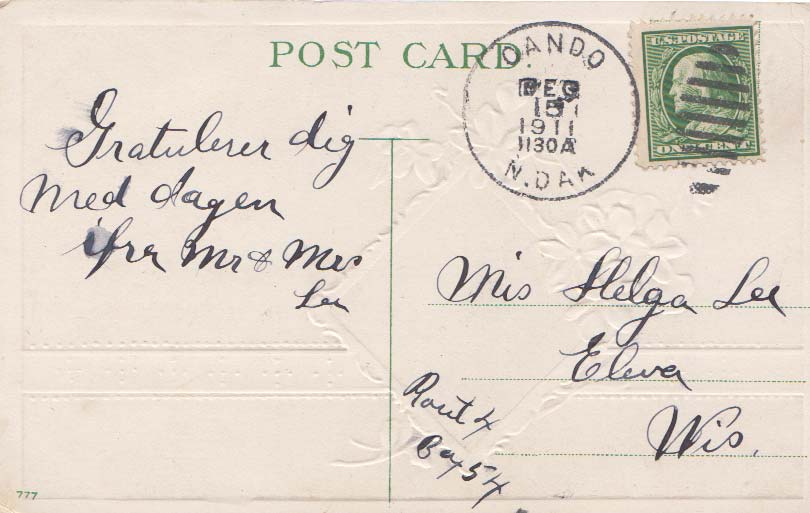 POST CARD.
CANDO
DEC
15
1911
1130A
N.DAK
U.S. POSTAGE
ONE CENT
Gratulerer dig
med dagen
ifra Mr & Mrs
Lee
Mis Helga Lee
Eleva
Wis.
Rout 4
Box 54
777